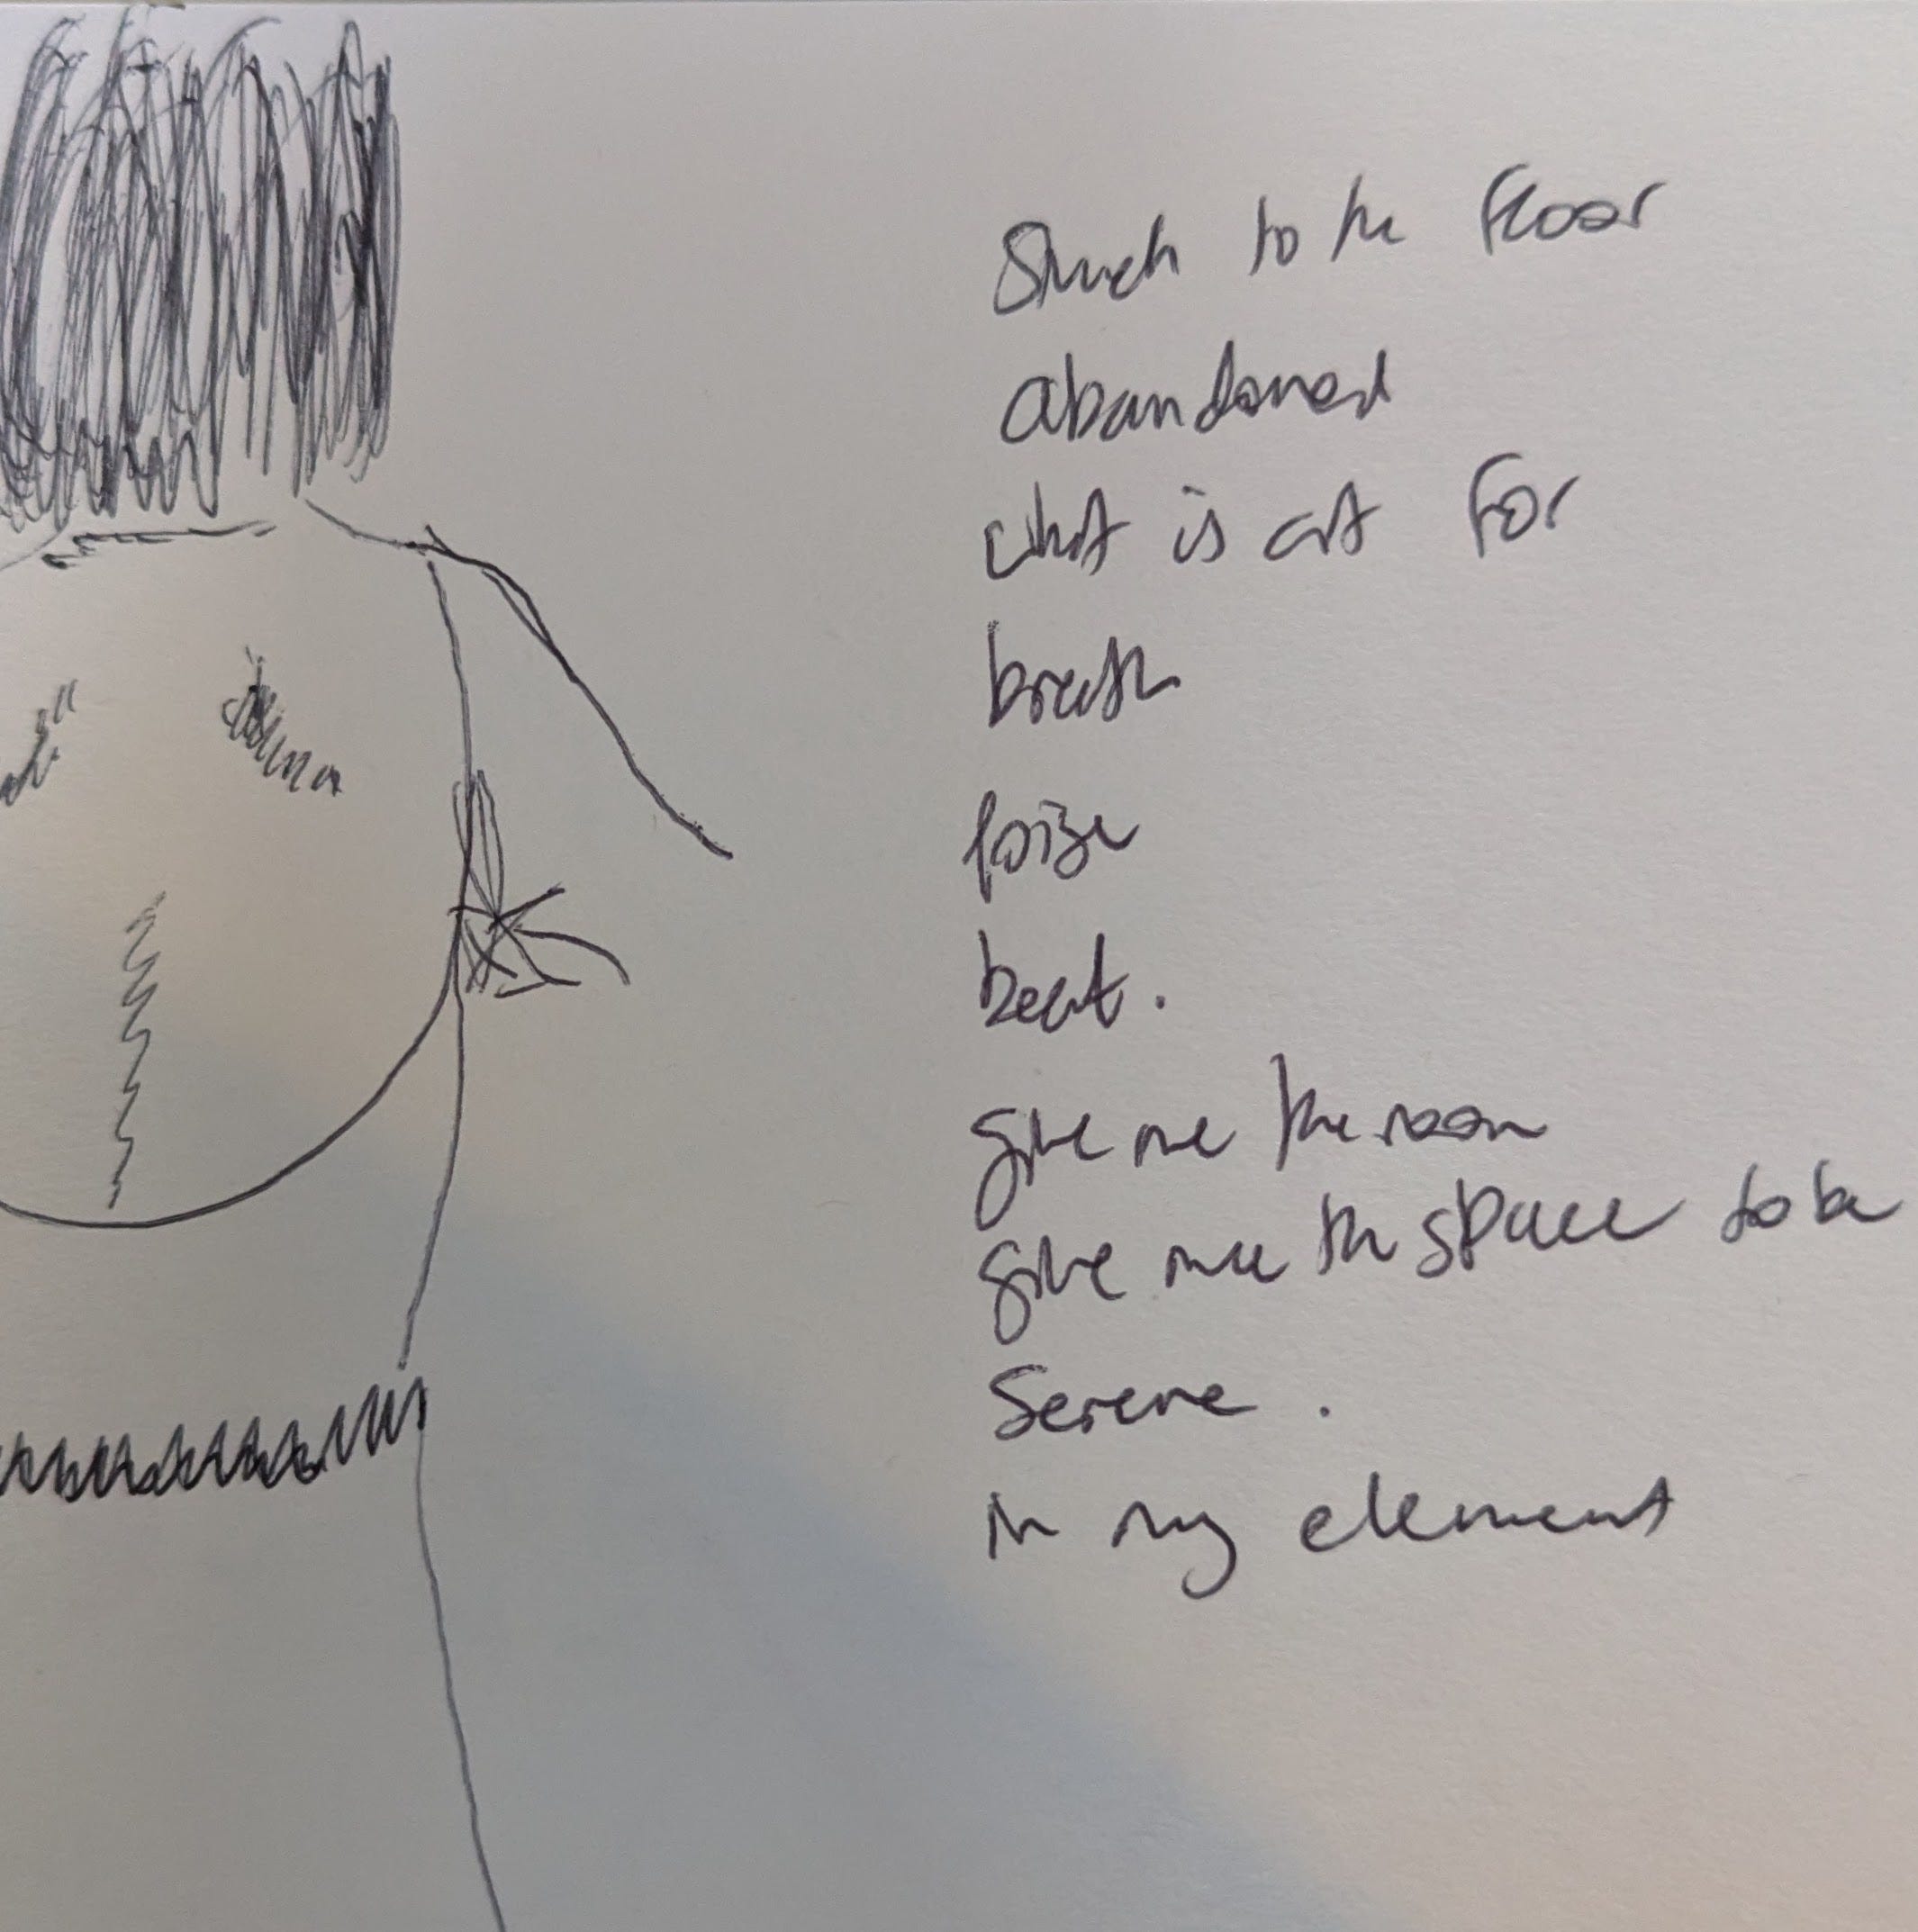 Stuck to the floor
abandoned
what is art for
breath
poise
beat.
give me the room
give me the space to be
Serene.
in my element